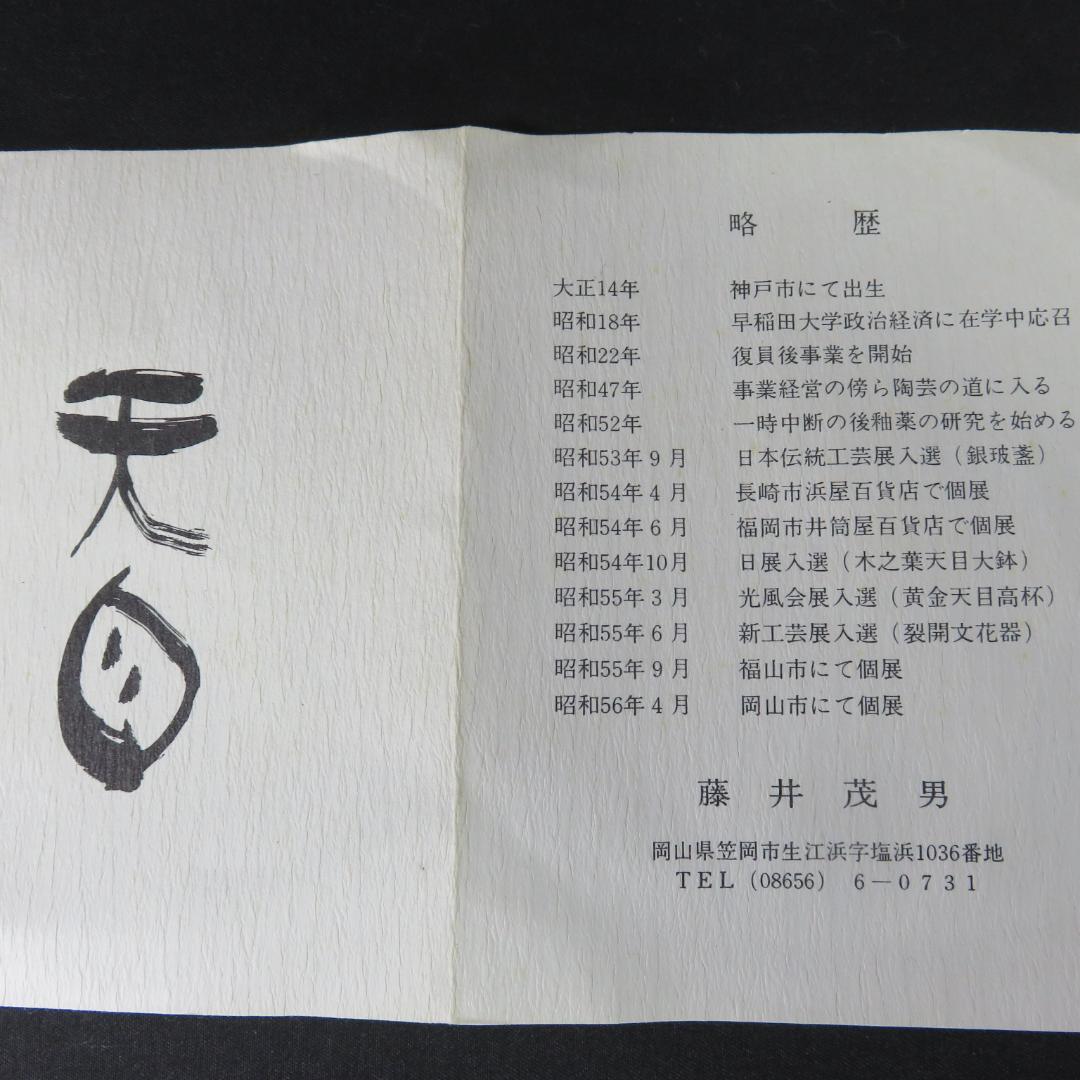 天目
略歴
大正14年 神戸市にて出生
昭和18年 早稲田大学政治経済に在学中応召
昭和22年 復員後事業を開始
昭和47年 事業経営の傍ら陶芸の道に入る
昭和52年 一時中断の後釉薬の研究を始める
昭和53年9月 日本伝統工芸展入選（銀玻盞）
昭和54年4月 長崎市浜屋百貨店で個展
昭和54年6月 福岡市井筒屋百貨店で個展
昭和54年10月 日展入選（木之葉天目大鉢）
昭和55年3月 光風会展入選（黄金天目高杯）
昭和55年6月 新工芸展入選（裂開文花器）
昭和55年9月 福山市にて個展
昭和56年4月 岡山市にて個展
藤井茂男
岡山県笠岡市生江浜字塩浜1036番地
TEL（08656）6－0731